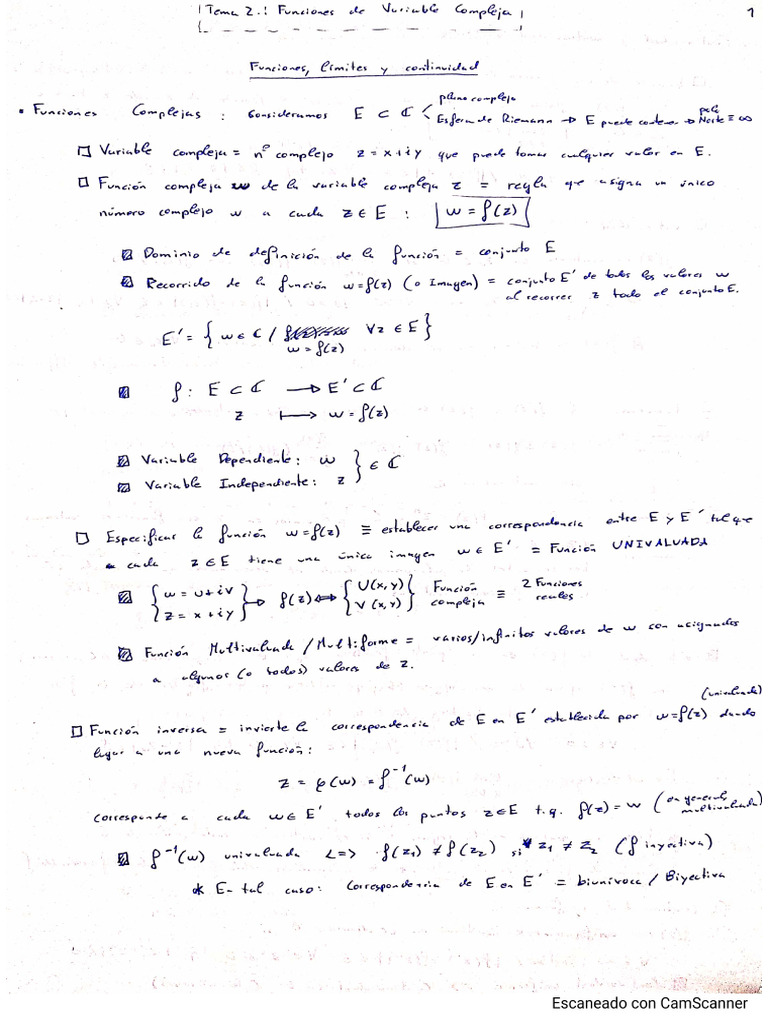 Tema 2.: Funciones de Variable Compleja
1
Funciones, límites y continuidad
• Funciones Complejas: Consideramos E ⊂ ℂ < plano complejo
Esfera de Riemann → E puede contener → polo Norte ≡ ∞
□ Variable compleja = nº complejo z = x+iy que puede tomar cualquier valor en E.
□ Función compleja w de la variable compleja z = regla que asigna un único
número complejo w a cada z ∈ E : w = f(z)
Dominio de definición de la función = conjunto E
Recorrido de la función w=f(z) (o Imagen) = conjunto E' de todos los valores w
al recorrer z todo el conjunto E.
E' = { w ∈ ℂ / w = f(z) ∀z ∈ E }
f : E ⊂ ℂ → E' ⊂ ℂ
z ↦ w = f(z)
Variable Dependiente: w } ∈ ℂ
Variable Independiente: z
□ Especificar la función w=f(z) ≡ establecer una correspondencia entre E y E' tal que
a cada z ∈ E tiene una única imagen w ∈ E' = Función UNIVALUADA
{ w = u+iv z = x+iy } → f(z) ↔ { U(x,y) V(x,y) } Función compleja ≡ 2 Funciones reales
Función Multivaluada / Multiforme = varios/infinitos valores de w con asignados
a algunos (o todos) valores de z.
□ Función inversa = invierte la correspondencia de E en E' establecida por w=f(z) (univaluada) dando
lugar a una nueva función:
z = φ(w) = f⁻¹(w)
Corresponde a cada w ∈ E' todos los puntos z ∈ E t.q. f(z) = w (en general multivaluada)
f⁻¹(w) univaluada <=> f(z₁) ≠ f(z₂) si z₁ ≠ z₂ (f inyectiva)
* En tal caso: Correspondencia de E en E' = biunívoca / Biyectiva
Escaneado con CamScanner